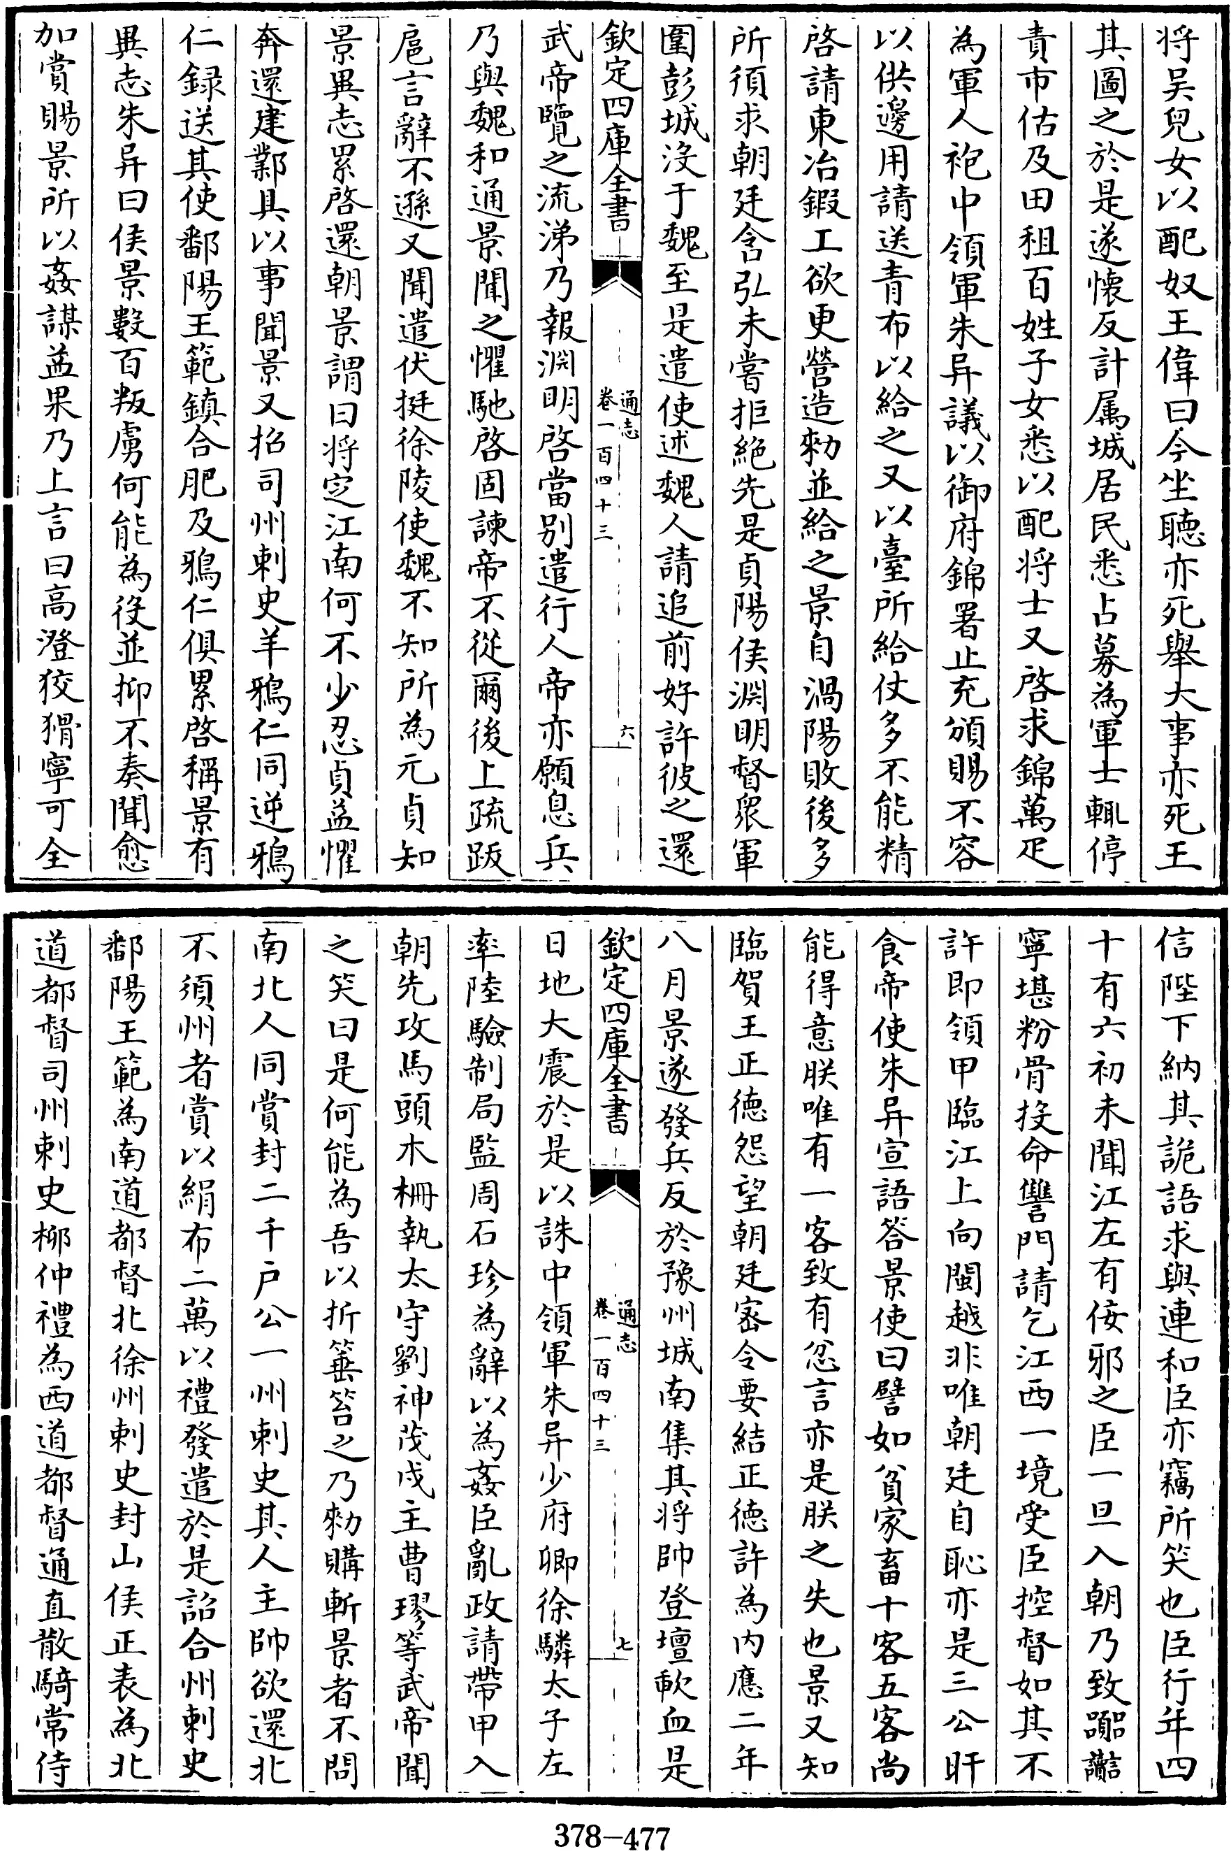 将吴兒女以配奴王偉曰今坐聽亦死舉大事亦死王
其圖之於是遂懷反計属城居民悉占募為軍士輒停
責市估及田租百姓子女悉以配将士又啓求錦萬疋
為軍人袍中領軍朱异議以御府錦署止充頒賜不容
以供邊用請送青布以給之又以臺所給仗多不能精
啓請東冶鍜工欲更營造勑並給之景自渦陽敗後多
所須求朝廷含弘未嘗拒絶先是貞陽侯淵明督衆軍
圍彭城沒于魏至是遣使述魏人請追前好許彼之還
欽定四庫全書
通志
卷一百四十三
六
武帝覽之流涕乃報淵明啓當别遣行人帝亦願息兵
乃與魏和通景聞之懼馳啓固諫帝不從爾後上疏跋
扈言辭不遜又聞遣伏挺徐陵使魏不知所為元貞知
景異志累啓還朝景謂曰将定江南何不少忍貞益懼
奔還建鄴具以事聞景又招司州刺史羊鴉仁同逆鴉
仁録送其使鄱陽王範鎮合肥及鴉仁俱累啓稱景有
異志朱异曰侯景數百叛虜何能為役並抑不奏聞愈
加賞賜景所以姦謀益果乃上言曰高澄狡猾寧可全
信陛下納其詭語求與連和臣亦竊所笑也臣行年四
十有六初未聞江左有佞邪之臣一旦入朝乃致嚻讟
寧堪粉骨投命讐門請乞江西一境受臣控督如其不
許即領甲臨江上向閩越非唯朝廷自恥亦是三公旰
食帝使朱异宣語答景使曰譬如貧家畜十客五客尚
能得意朕唯有一客致有忿言亦是朕之失也景又知
臨賀王正德怨望朝廷密令要結正德許為内應二年
八月景遂發兵反於豫州城南集其将帥登壇歃血是
欽定四庫全書
通志
卷一百四十三
七
日地大震於是以誅中領軍朱异少府卿徐驎太子左
率陸驗制局監周石珍為辭以為姦臣亂政請帶甲入
朝先攻馬頭木柵執太守劉神茂戍主曹璆等武帝聞
之笑曰是何能為吾以折箠笞之乃勑購斬景者不問
南北人同賞封二千户公一州刺史其人主帥欲還北
不須州者賞以絹布二萬以禮發遣於是詔合州刺史
鄱陽王範為南道都督北徐州刺史封山侯正表為北
道都督司州刺史柳仲禮為西道都督通直散騎常侍
378-477